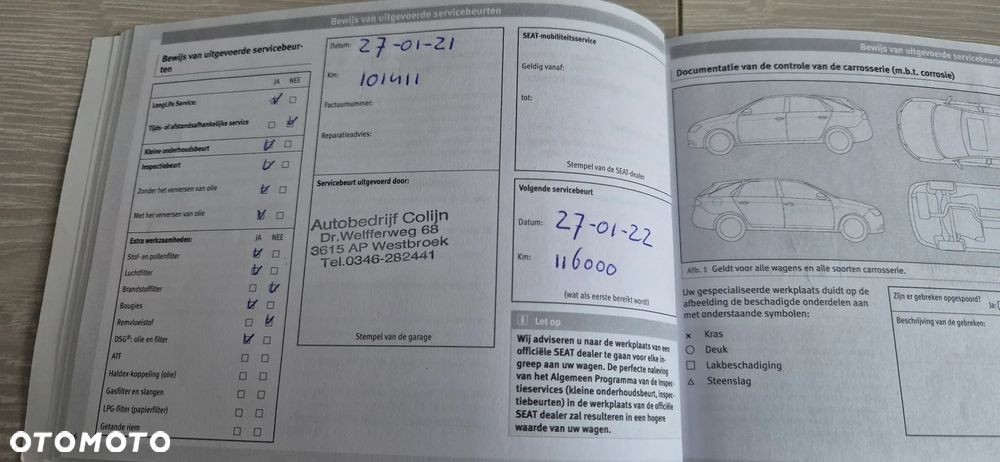 Bewijs van uitgevoerde servicebeurten
Bewijs van uitgevoerde servicebeur-
ten
JA NEE
LongLife Service:
Tijds- of afstandsafhankelijke service
Kleine onderhoudsbeurt
Inspectiebeurt
Zonder het verversen van olie
Met het verversen van olie
Extra werkzaamheden:
JA NEE
Stof- en pollenfilter
Luchtfilter
Brandstoffilter
Bougies
Remvloeistof
DSG®: olie en filter
ATF
Haldex-koppeling (olie)
Gasfilter en slangen
LPG-filter (papierfilter)
Getande riem
Datum: 27-01-21
Km: 101411
Factuurnummer:
Reparatieadvies:
Servicebeurt uitgevoerd door:
Autobedrijf Colijn
Dr. Welfferweg 68
3615 AP Westbroek
Tel.0346-282441
Stempel van de garage
SEAT-mobiliteitsservice
Geldig vanaf:
tot:
Stempel van de SEAT-dealer
Volgende servicebeurt
Datum: 27-01-22
Km: 116000
(wat als eerste bereikt word)
i Let op
Wij adviseren u naar de werkplaats van een
officiële SEAT dealer te gaan voor elke in-
greep aan uw wagen. De perfecte naleving
van het Algemeen Programma van de Inspec-
tieservices (kleine onderhoudsbeurt, inspec-
tiebeurten) in de werkplaats van de officiële
SEAT dealer zal resulteren in een hogere
waarde van uw wagen.
Bewijs van uitgevoerde servicebeurten
Documentatie van de controle van de carrosserie (m.b.t. corrosie)
Afb. 1 Geldt voor alle wagens en alle soorten carrosserie.
Uw gespecialiseerde werkplaats duidt op de
afbeelding de beschadigde onderdelen aan
met onderstaande symbolen:
× Kras
○ Deuk
□ Lakbeschadiging
△ Steenslag
Zijn er gebreken opgespoord?
Ja:
Beschrijving van de gebreken:
OTOMOTO